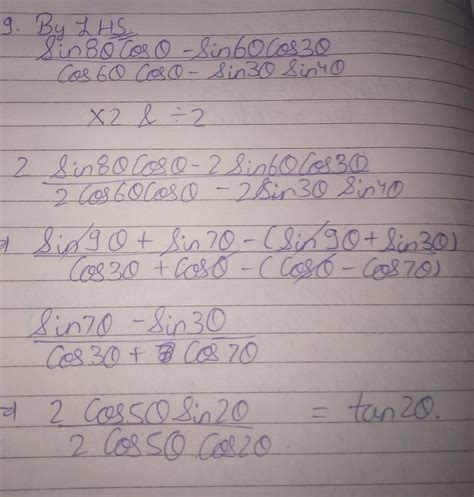 9. By LHS.
Sin8θCosθ - Sin6θCos3θ
Cos6θ Cosθ - Sin3θ Sin4θ
×2 & ÷2
2 Sin8θCosθ - 2 Sin6θCos3θ
2 Cos6θCosθ - 2Sin3θ Sin4θ
Sin9θ + Sin7θ - (Sin9θ + Sin3θ)
Cos3θ + Cosθ - (Cosθ - Cos7θ)
Sin7θ - Sin3θ
Cos3θ + Cos7θ
2 Cos5θ Sin2θ = tan2θ.
2 Cos5θ Cos2θ